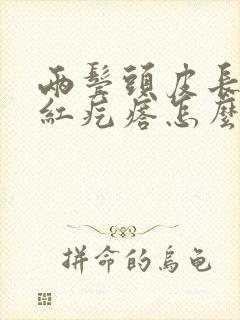 兩鬓頭皮長
紅疙瘩怎麼
拼命的烏龜